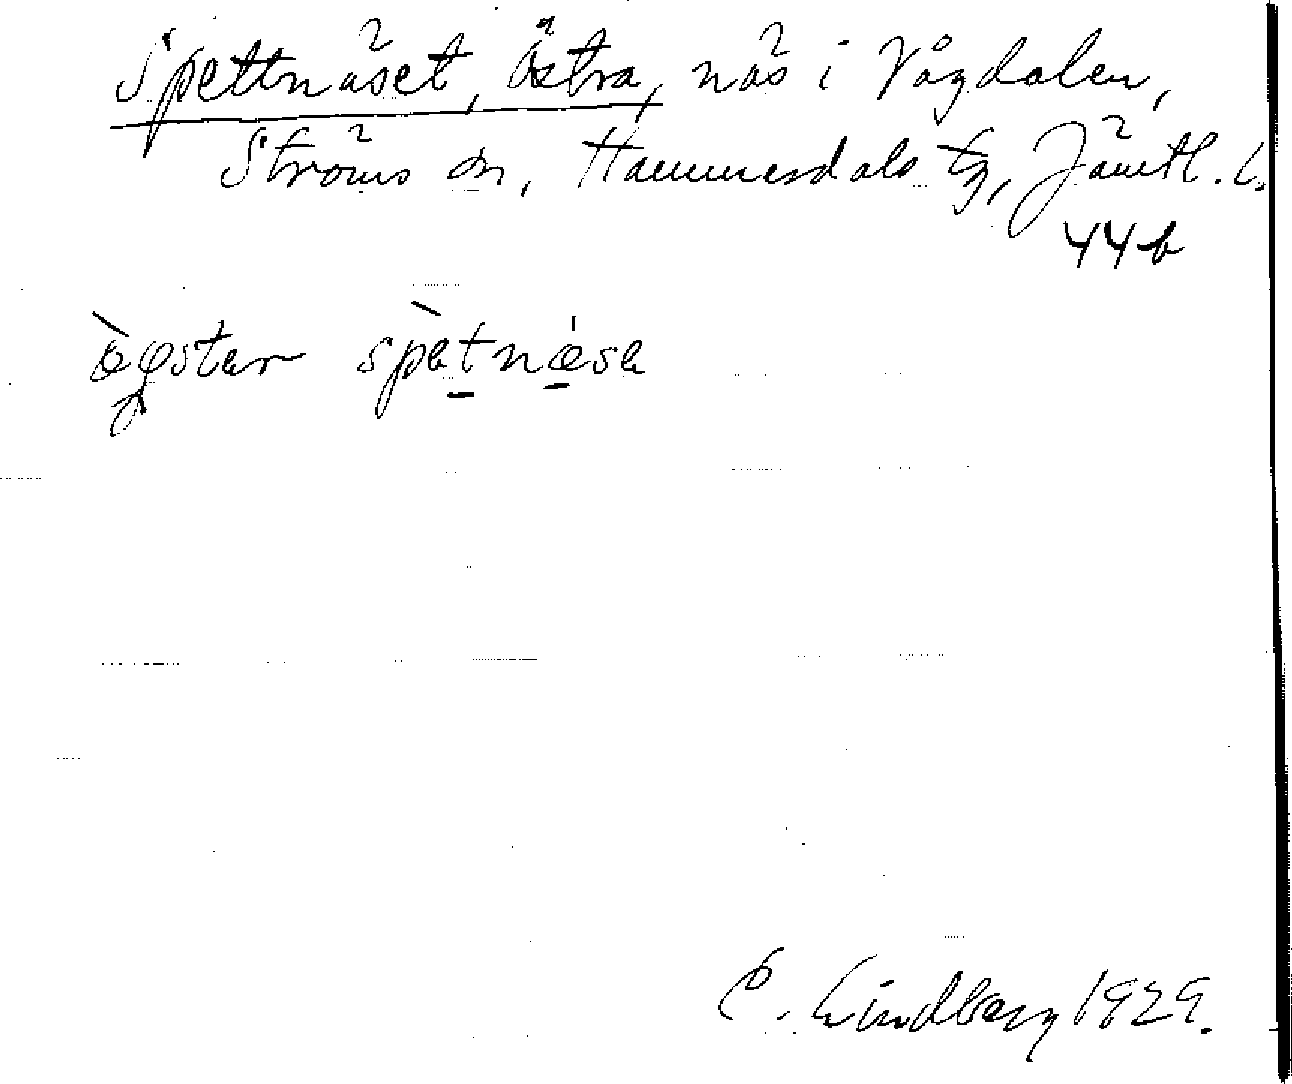 Spettnäset, Östra, näs i Vågdalen,
Ströms sn, Hammerdals tg, Jämtl. l.
44b
spètnæ̀se
C. Lindberg 1929.